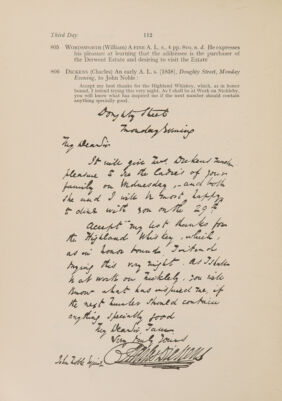 Third Day 112
805 WORDSWORTH (William) A FINE A. L. s., 4 pp. 8vo, n. d. He expresses
his pleasure at learning that the addressee is the purchaser of
the Derwent Estate and desiring to visit the Estate
806 DICKENS (Charles) An early A. L. s. [1838], Doughty Street, Monday
Evening, to John Noble:
Accept my best thanks for the Highland Whiskey, which, as in honor
bound, I intend trying this very night. As I shall be at Work on Nickleby,
you will know what has inspired me if the next number should contain
anything specially good.
Doughty Street
Monday Evening
My Dear Sir
It will give Mrs. Dickens much
pleasure to see the Ladies of your
family on Wednesday, and both
she and I will be most happy
to dine with you on the 29th
Accept my best thanks for
the Highland Whiskey, which,
as in honor bound I intend
trying this very night. As I shall be
at work on Nickleby, you will
know what has inspired me, if
the next number should contain
anything specially good
My Dear Sir I am
Very truly Yours
John Noble Esquire Charles Dickens